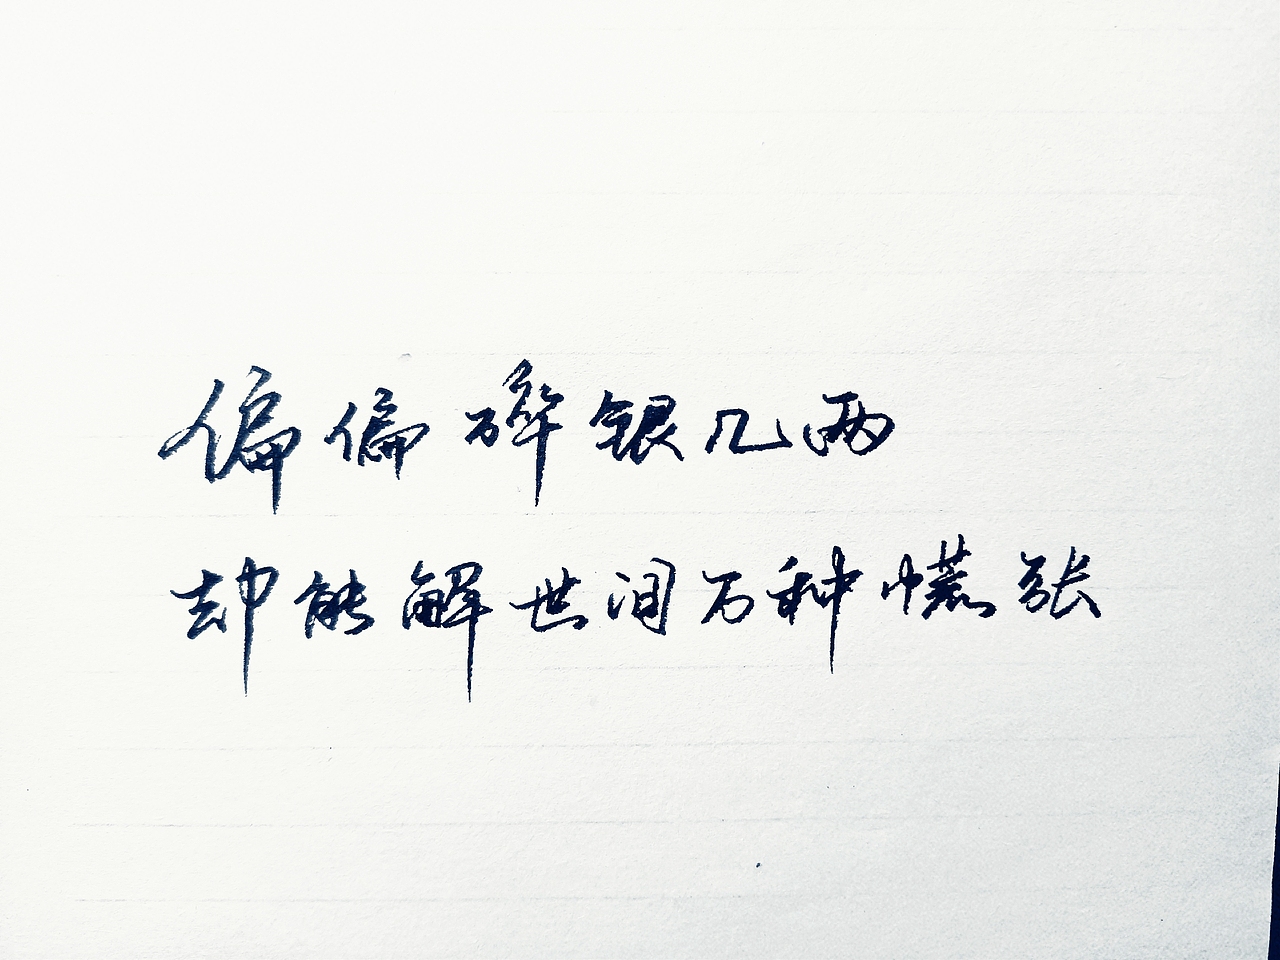 偏偏碎银几两
却能解世间万种慌张